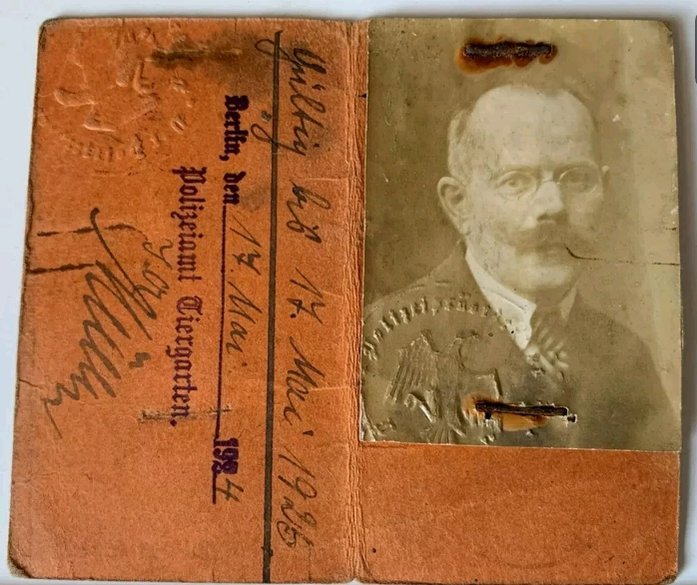 Gültig bis 17. Mai 1926
Berlin, den 17. Mai 1924
Polizeiamt Tiergarten.